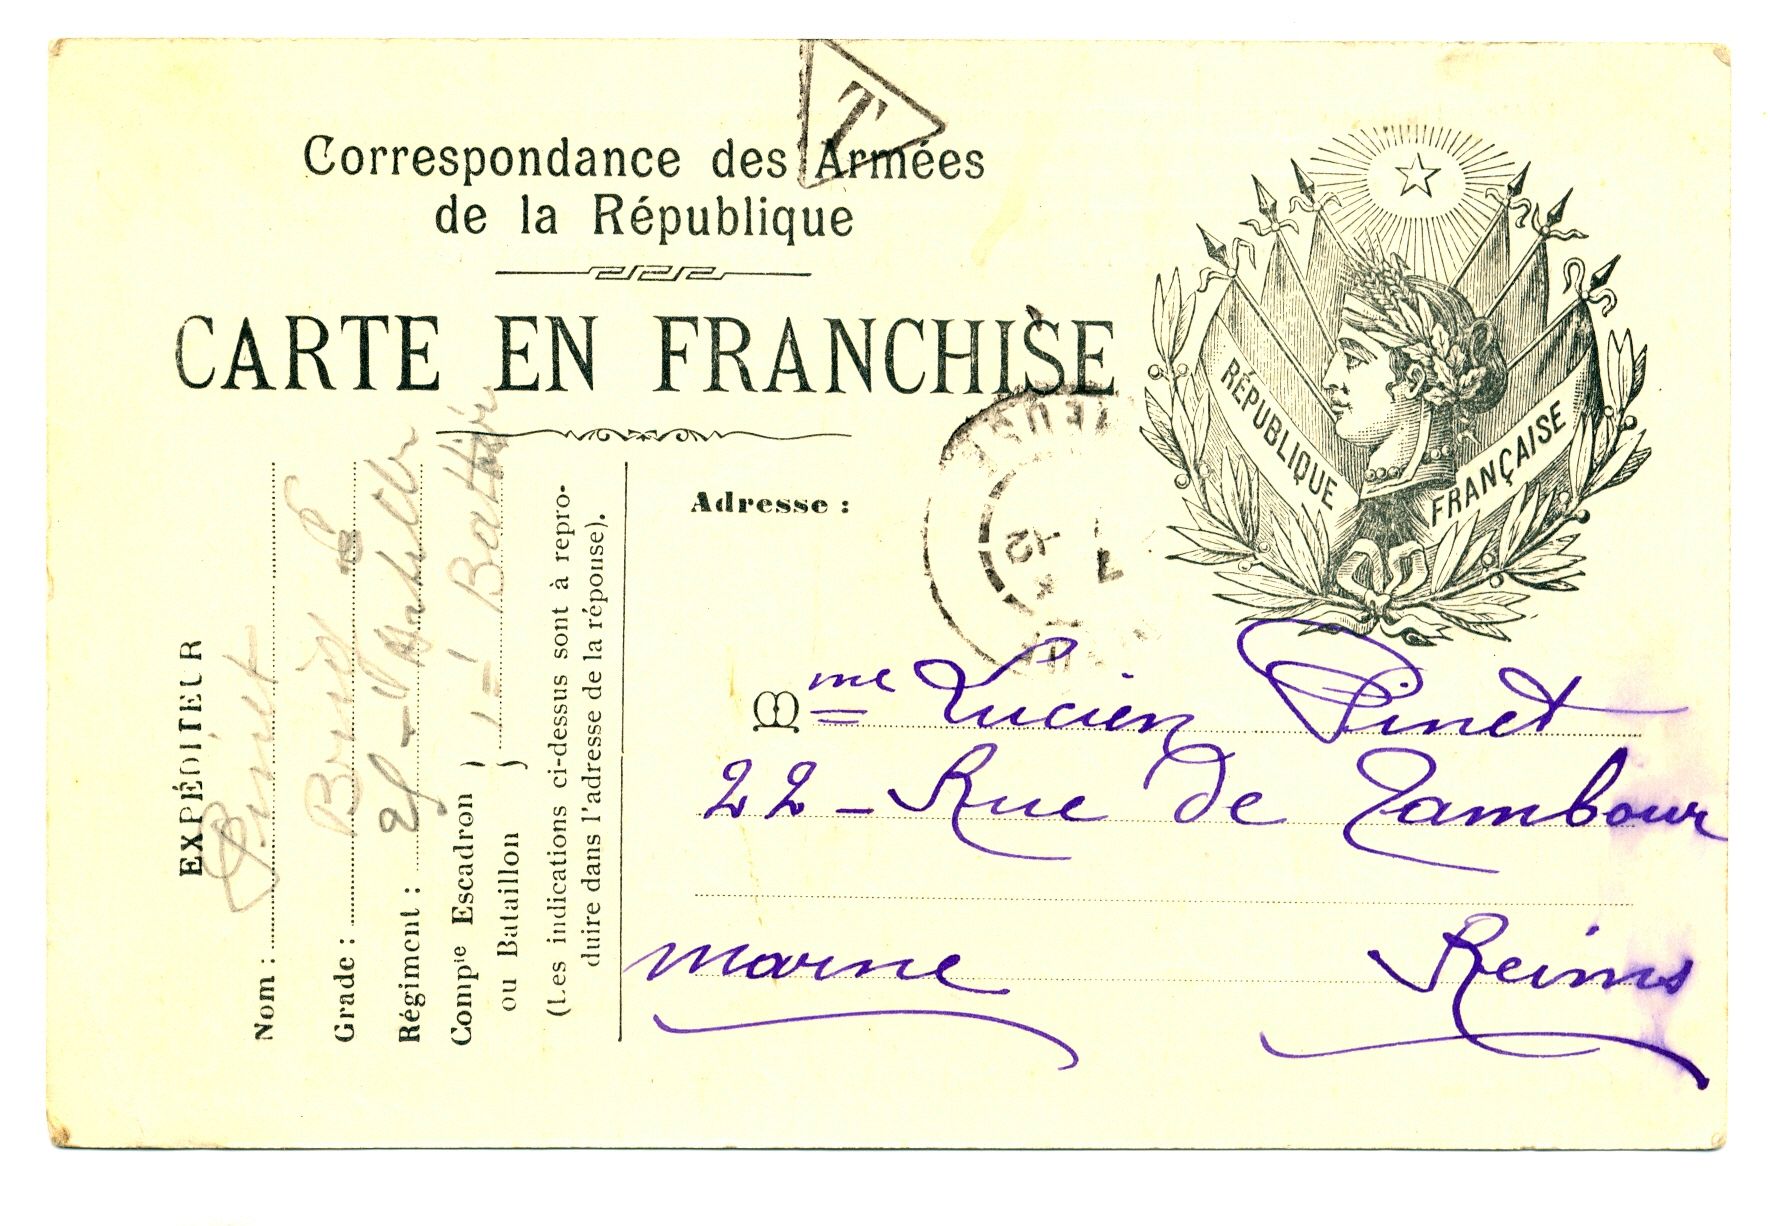 T
Correspondance des Armées
de la République
CARTE EN FRANCHISE
RÉPUBLIQUE FRANÇAISE
EXPÉDITEUR
Nom : Pinet
Grade :
Régiment :
Compie Escadron }
ou Bataillon }
(Les indications ci-dessus sont à repro-
duire dans l'adresse de la réponse).
Adresse :
Mme Lucien Pinet
22 - Rue de Tambour
Marne Reims